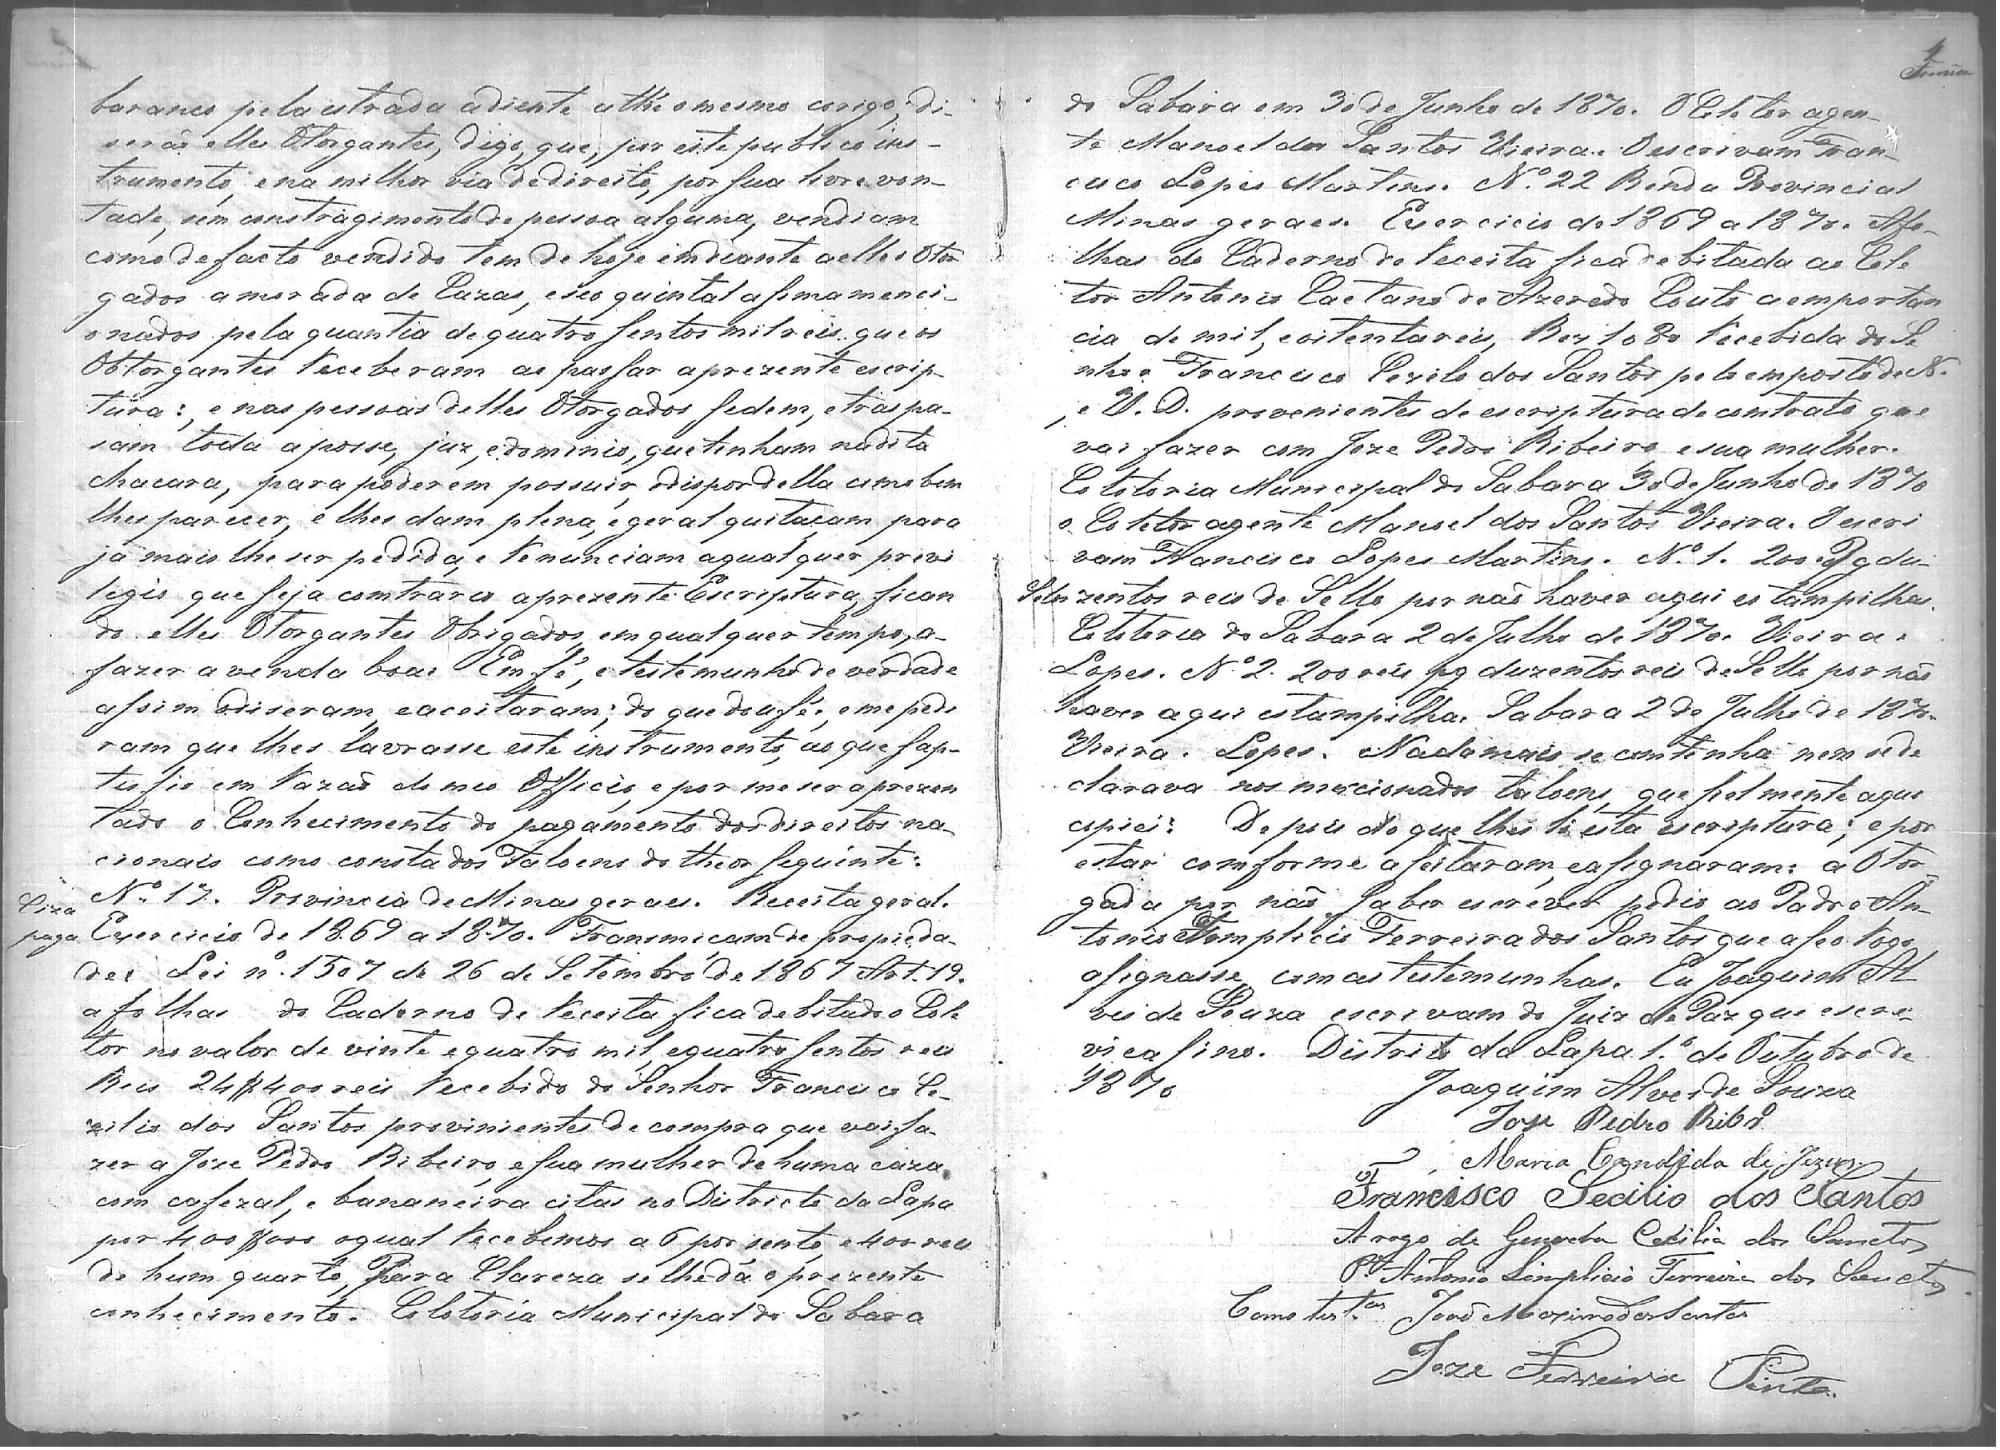 baranco pela estrada adiente athe o mesmo corigo, di-
serão elles Otorgantes, digo, que, por este publico ins-
trumento, e na milhor via de direito, por sua livre von-
tade, sem constragimento de pessoa alguma, vendiam
como de facto vendido tem de hoje indiante a elles Otor
gados a morada de Cazas, e seo quintal asima menci-
onados pela quantia de quatro sentos mil reis que os
Obtorgantes receberam ao passar a prezente escrip-
tura: e nas pessoas delles Otorgados sedem, e traspa-
sam toda a posse, juz, e dominio, que tinham na dita
chacara, para poderem possuir, e dispor della como bem
lhes parecer, e lhes dam plena, e geral quitaçam para
já mais lhe ser pedida, e renunciam a qual quer previ
legio que seja contrario a prezente Escriptura, fican
do elles Otorgantes Obrigados, em qual quer tempo, a
fazer a venda boa: Em fé, e testemunho de verdade
assim o diseram, e aceitaram; do que dou fé; e me pedi
ram que lhes lavrasse este instrumento, ao que sap-
tisfis em razão do meo Officio, e por me ser aprezen
tado o Conhecimento do pagamento dos direitos na-
cionais como consta dos Taloens do theor seguinte:
Siza paga
Nº 17. Provincia de Minas geraes. Receita geral.
Exercicio de 1869 a 1870. Transmicam de propieda-
des Lei nº 1507 de 26 de Setembro de 1867 Art. 19.
a folhas do Caderno de receita fica debitado o Cole
tor no valor de vinte e quatro mil, e quatro sentos reis
Reis 24$400 reis recebido do Senhor Francisco Ce-
zilio dos Santos provinientes de compra que vai fa-
zer a Joze Pedro Ribeiro, e sua mulher de huma caza
com cafezal, e bananeira citas no Districto da Lapa
por 400$000 o qual recebemos a 6 por sento, e 400 reis
de hum quarto, Para Clareza se lhe dá o prezente
conhecimento. Coletoria Municipal do Sabara
4
do Sabara em 30 de Junho de 1870. O Coletor agen-
te Manoel dos Santos Vieira. O escrivam Fran-
cisco Lopes Martins. Nº 22 Renda Provincial
Minas geraes. Exercicio de 1869 a 1870. A fo-
lhas do Caderno de receita fica debitada ao Cole
tor Antonio Caetano de Azeredo Couto a emportan
cia de mil, e oitenta reis, Rez 1080 recebida do Se
nhor Francisco Cezilo dos Santos pelo emposto de N.
e V. D. provenientes de escriptura de contrato que
vai fazer com Joze Pedro Ribeiro e sua mulher.
Coletoria Municipal do Sabara 30 de Junho de 1870
o Coletor agente Manoel dos Santos Vieira. O escri
vam Francisco Lopes Martins. Nº 1. 200 Pg du-
Selo
zentos reis de Sello por não haver aqui estampilhas.
Coletoria do Sabara 2 de Julho de 1870. Vieira.
Lopes. Nº 2. 200 reis pg duzentos reis de Sello por não
haver aqui estampilha. Sabara 2 de Julho de 1870.
Vieira. Lopes. Nada mais se continha nem se de
clarava nos mencionados taloens, que fielmente aqui
copiei: Depois do que lhes li esta escriptura; e por
estar comforme aseitaram, e asignaram: a Otor
gada por não saber escrever pedio ao Padre An-
tonio Simplicio Ferreira dos Santos que a seo rogo
asignasse, com as testemunhas. Eu Joaquim Al
ves de Souza escrivam do Juiz de Paz que escre-
vi e asino. Distrito da Lapa 1.º de Outubro de
1870
Joaquim Alves de Souza
Joze Pedro Ribrº
Maria Candida de Jezus
Francisco Secilio dos Santos
A rogo de Cecilia dos Sanctos
Pe Antonio Simplicio Ferreira dos Sanctos
Como test.as João Maximo dos Santos
Joze Ferreira Pinto